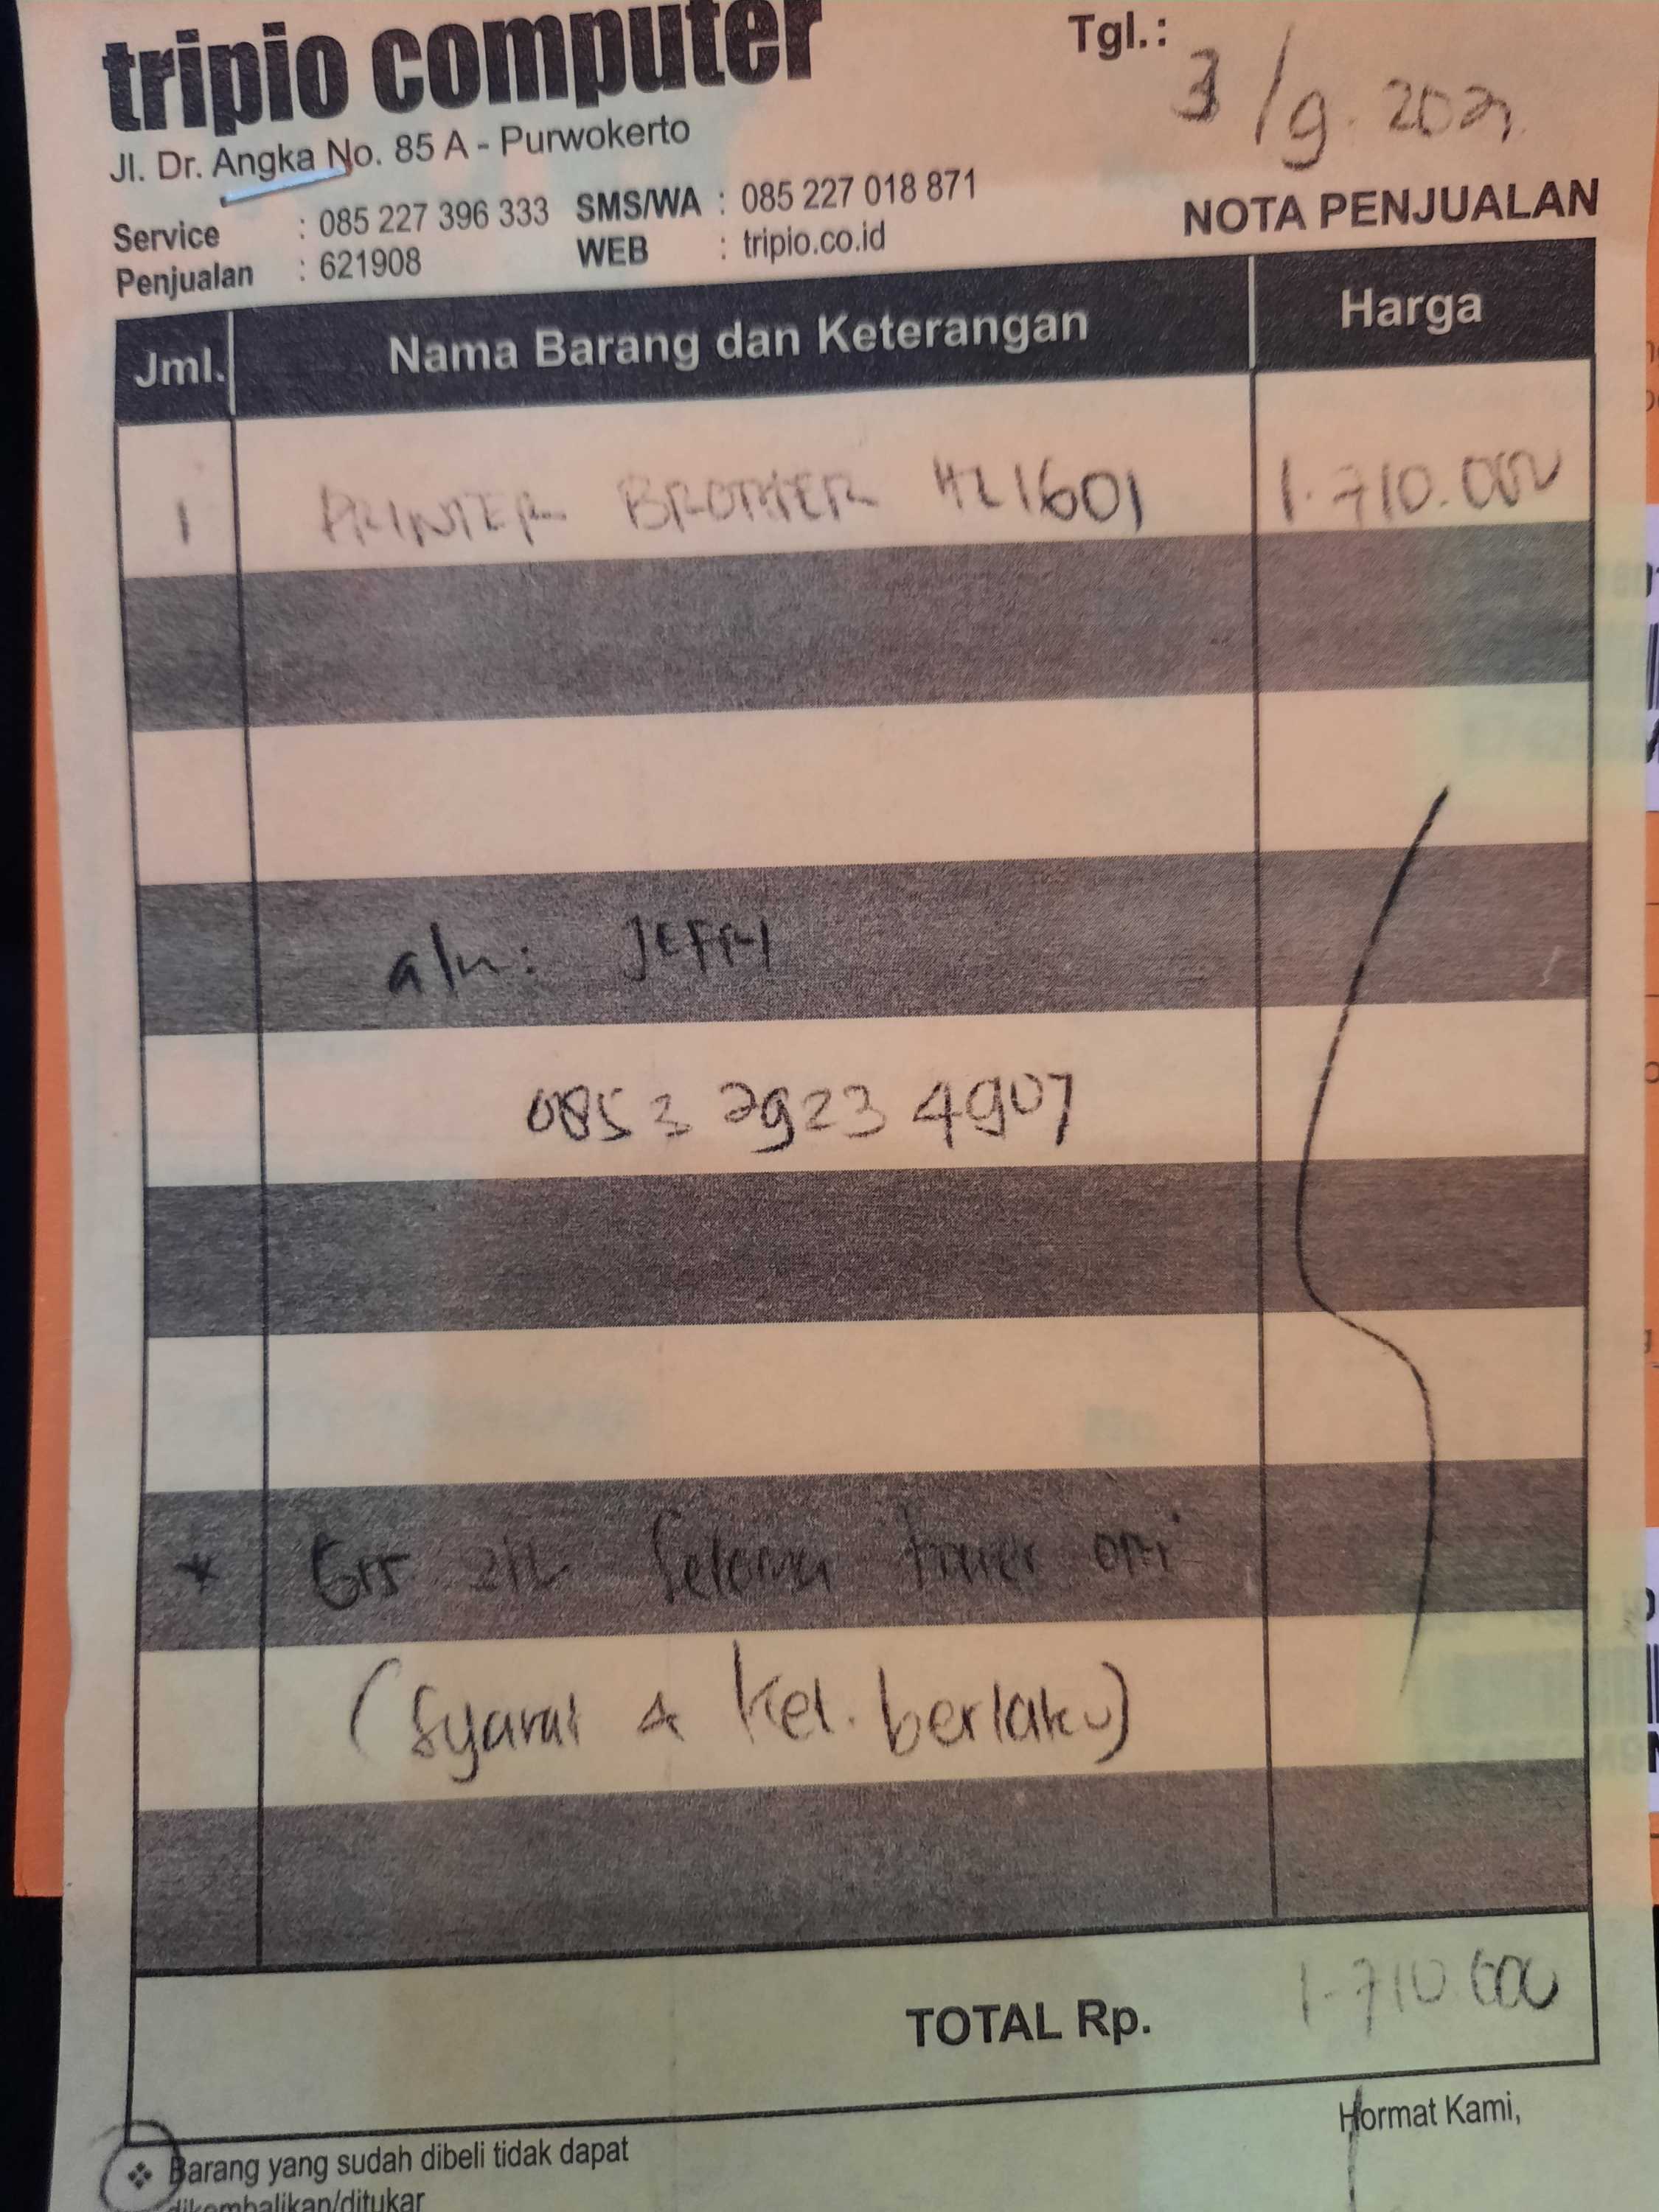 tripio computer
Jl. Dr. Angka No. 85 A - Purwokerto
Service : 085 227 396 333 SMS/WA : 085 227 018 871
Penjualan : 621908 WEB : tripio.co.id
Tgl. : 3/9.202
NOTA PENJUALAN
Jml. Nama Barang dan Keterangan Harga
1 PRINTER BROTHER HL1601 1.710.000
a/n: JEFRI
0853 2923 4907
* Grs 2th Selama toner ori
(Syarat & Ket. berlaku)
TOTAL Rp. 1.710.000
Hormat Kami,
❖ Barang yang sudah dibeli tidak dapat
dikembalikan/ditukar